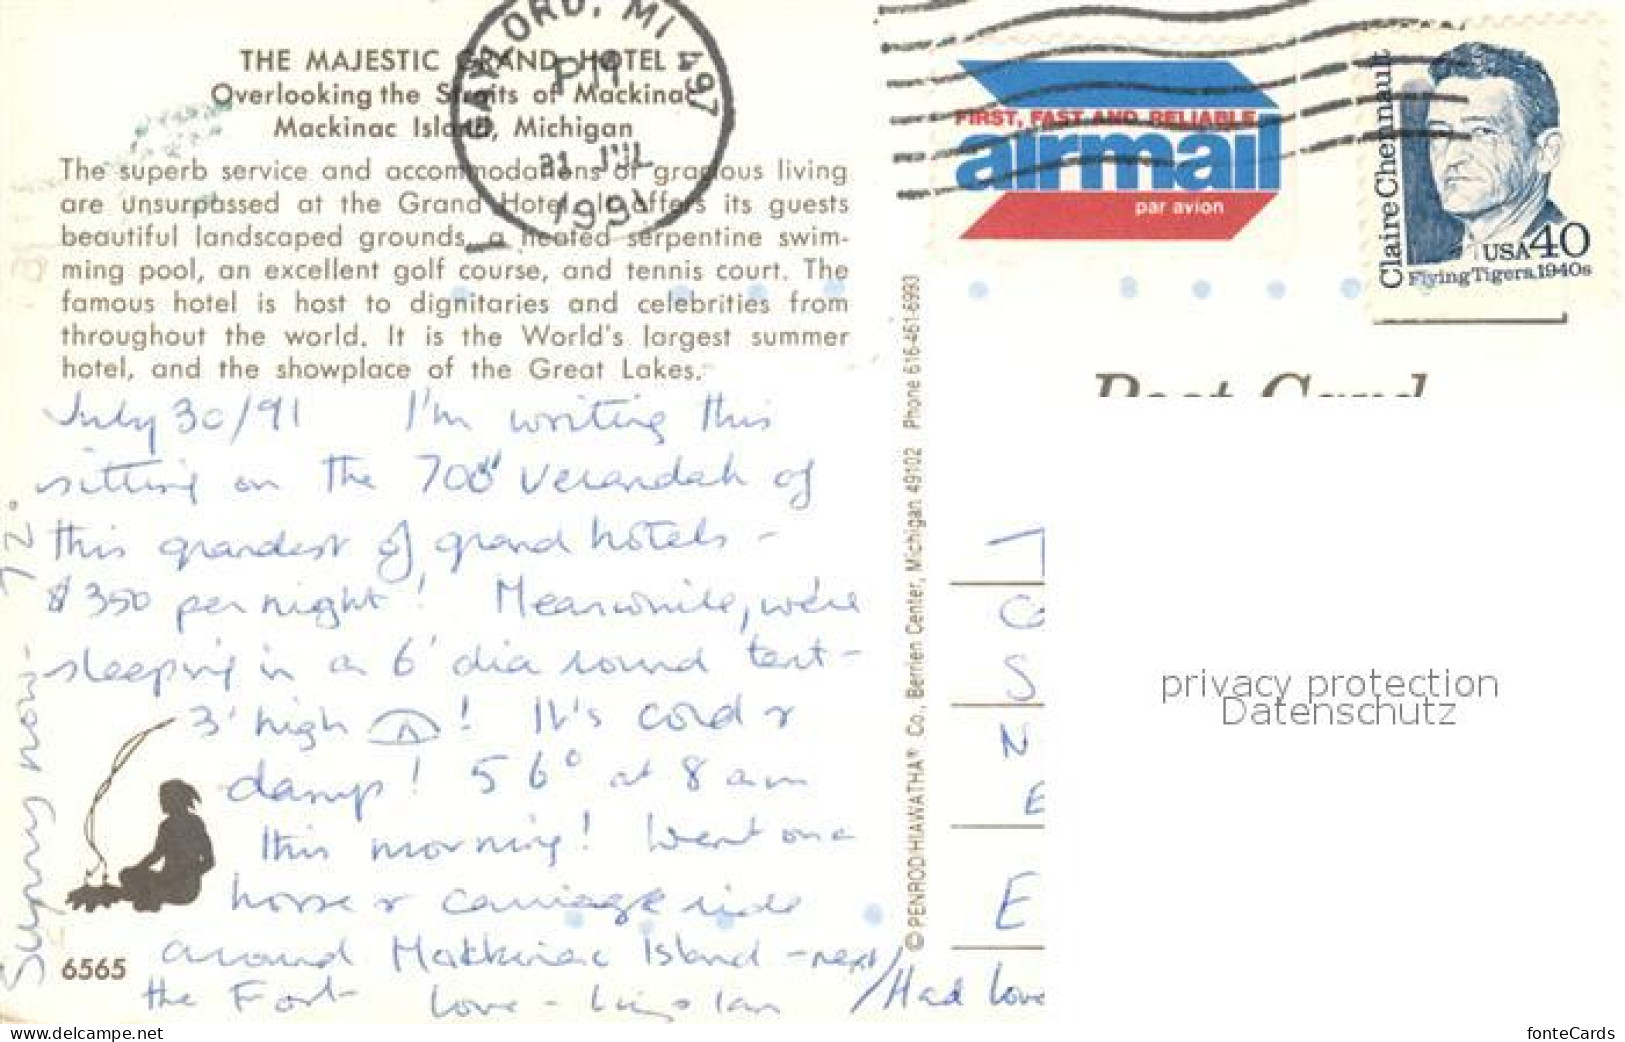 THE MAJESTIC GRAND HOTEL
Overlooking the Straits of Mackinac
Mackinac Island, Michigan
The superb service and accommodations of gracious living
are unsurpassed at the Grand Hotel. It offers its guests
beautiful landscaped grounds, a heated serpentine swim-
ming pool, an excellent golf course, and tennis court. The
famous hotel is host to dignitaries and celebrities from
throughout the world. It is the World's largest summer
hotel, and the showplace of the Great Lakes.
GAYLORD, MI 497
PM
31 JUL
1991
FIRST, FAST AND RELIABLE
airmail
par avion
Claire Chennault
USA 40
Flying Tigers, 1940s
Post Card
July 30/91 I'm writing this
sitting on the 700' verandah of
this grandest of grand hotels -
$350 per night! Meanwhile, we're
sleeping in a 6' dia round tent -
3' high ! It's cold &
damp! 56° at 8 am
this morning! Went on a
horse & carriage ride
around Makkinac Island - next
the Fort Love - Ian
/Had love
Sunny now - 72°
6565
© PENROD/HIAWATHA® Co., Berrien Center, Michigan 49102 Phone 616-461-6993
S
N
E
E
privacy protection
Datenschutz
www.delcampe.net
fonteCards